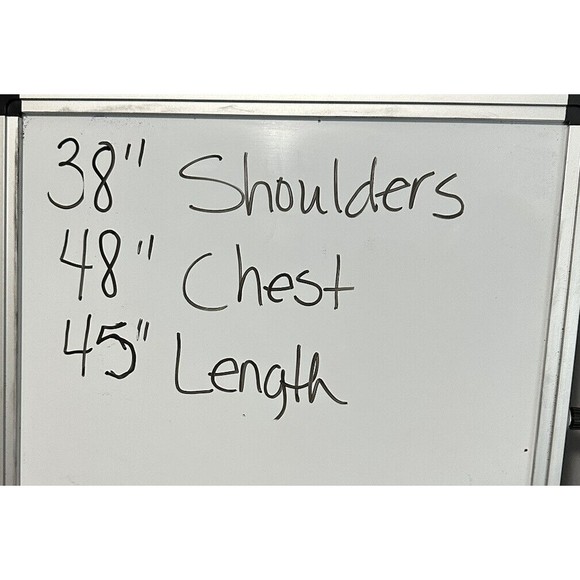 38" Shoulders
48" Chest
45" Length